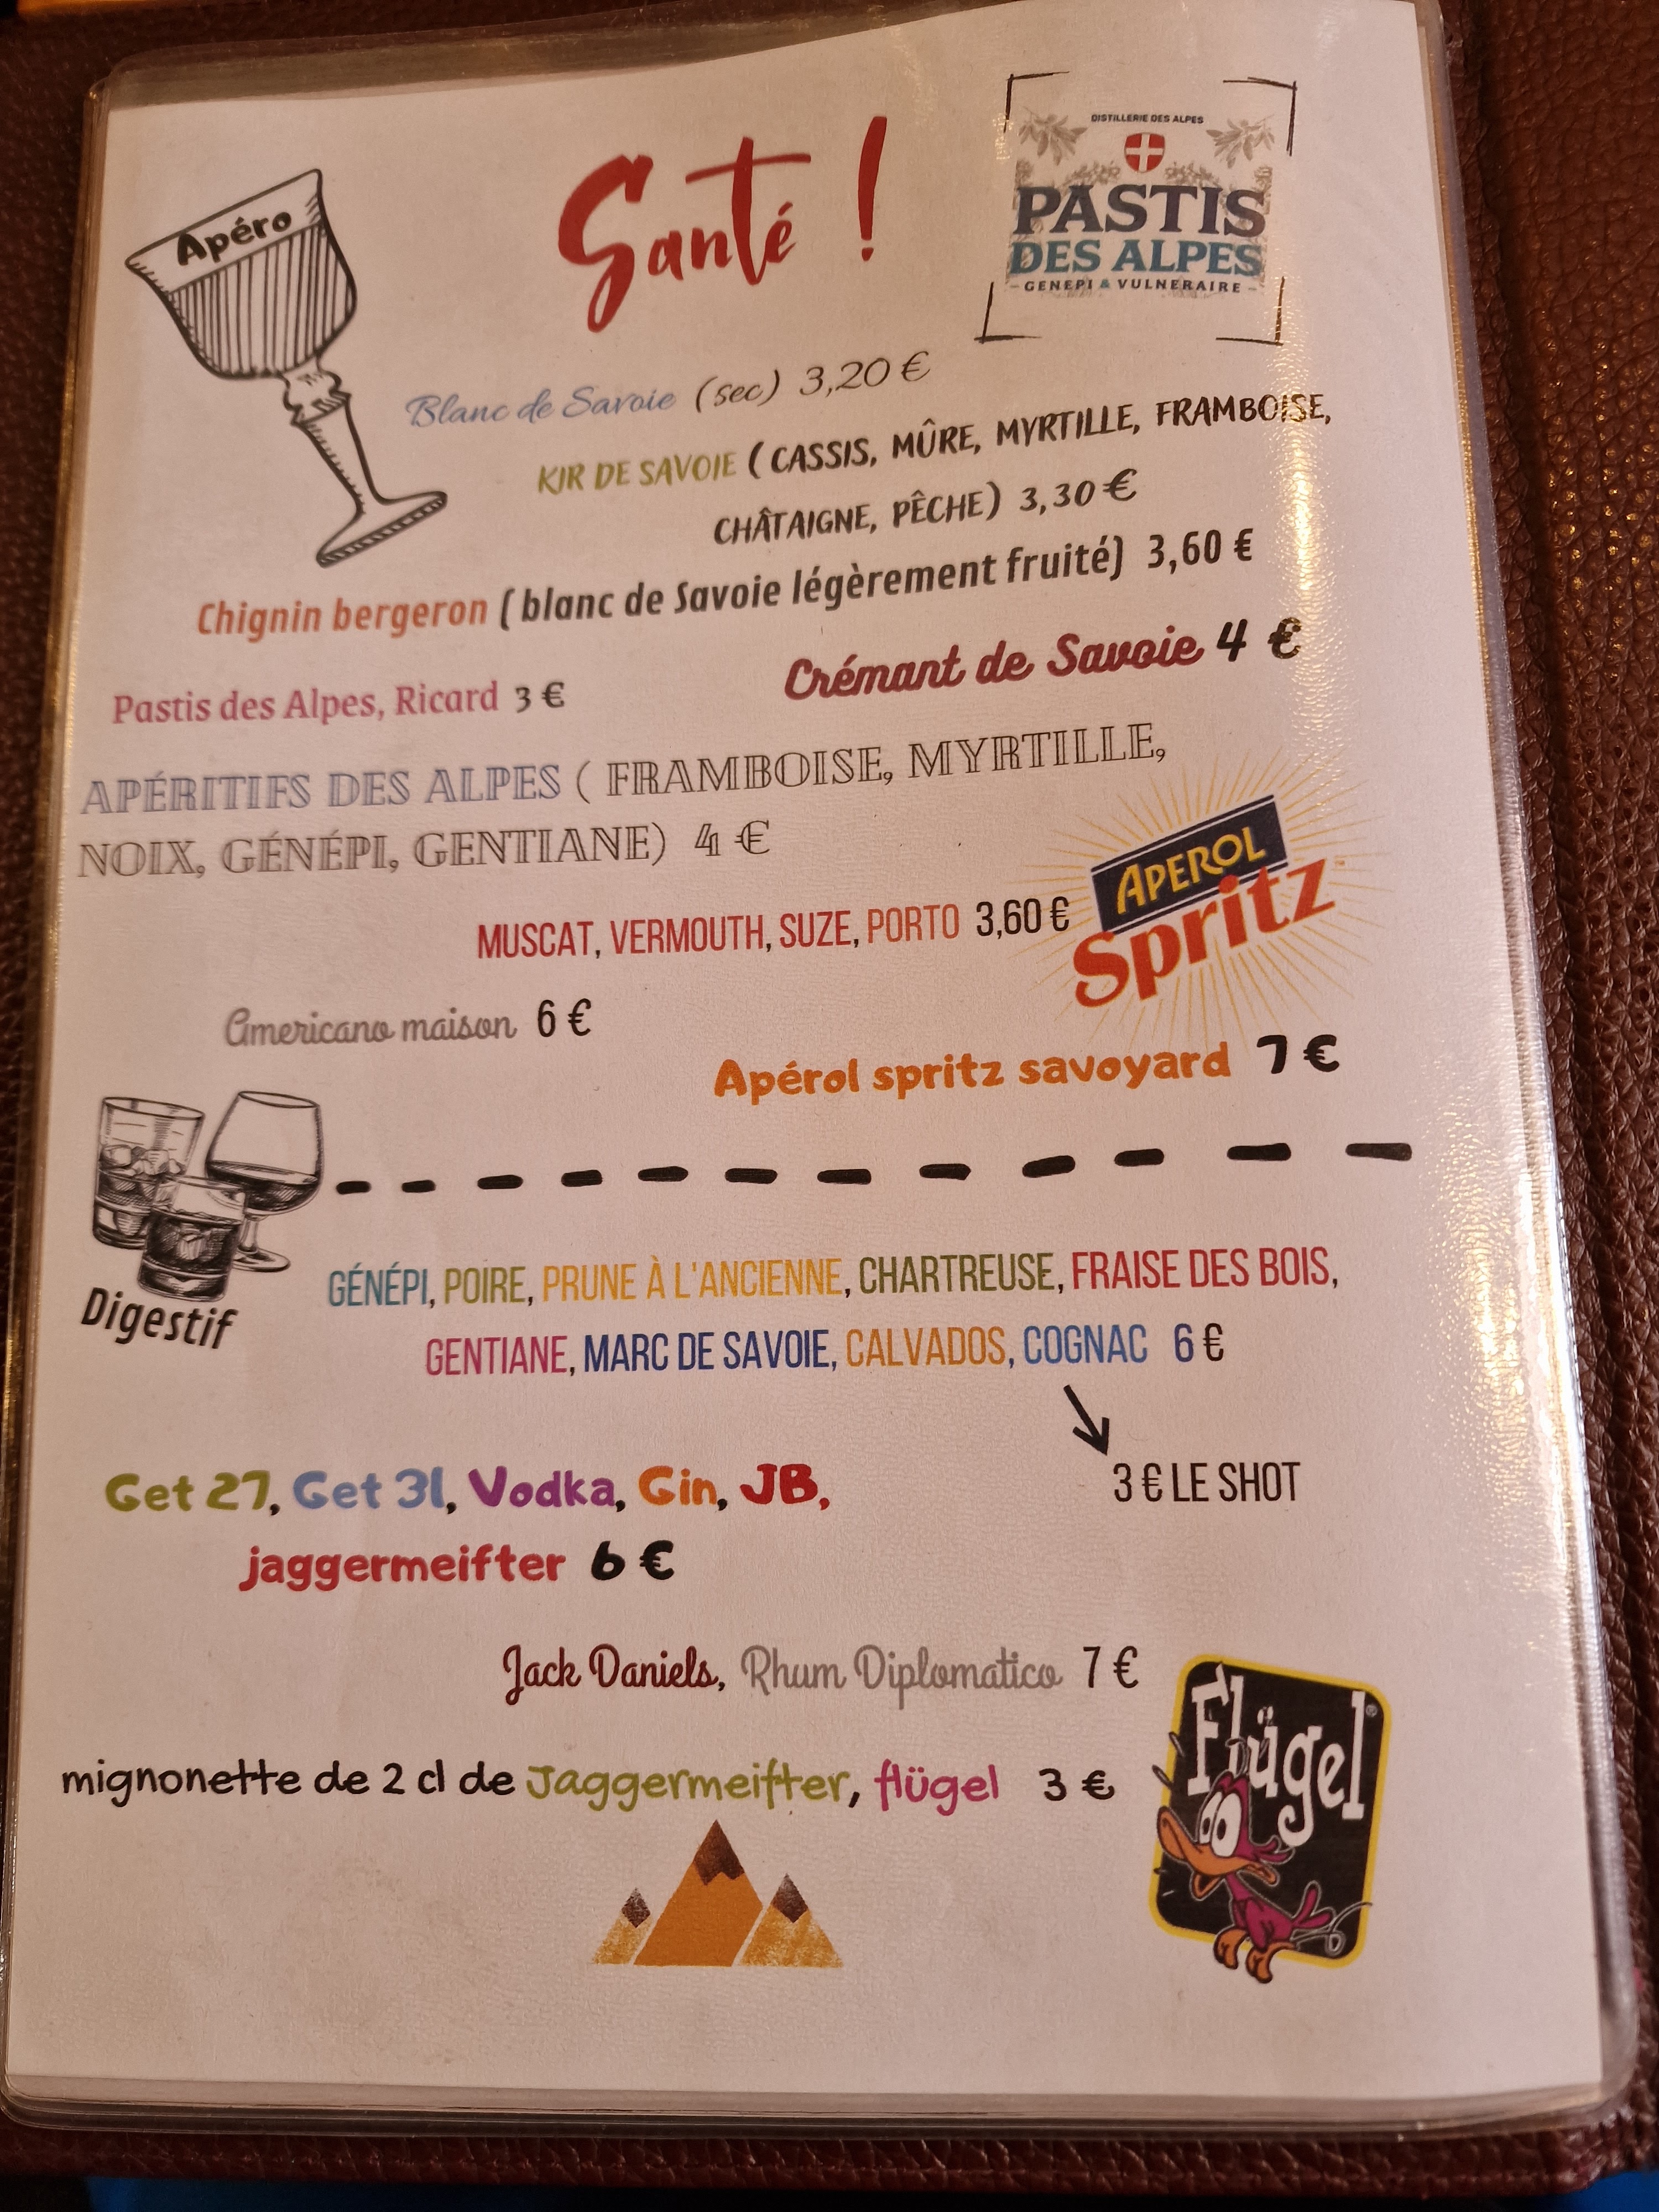 Apéro
Santé !
DISTILLERIE DES ALPES
PASTIS
DES ALPES
- GENEPI & VULNERAIRE -
Blanc de Savoie (sec) 3,20 €
KIR DE SAVOIE ( CASSIS, MÛRE, MYRTILLE, FRAMBOISE,
CHÂTAIGNE, PÊCHE) 3,30 €
Chignin bergeron ( blanc de Savoie légèrement fruité) 3,60 €
Crémant de Savoie 4 €
Pastis des Alpes, Ricard 3 €
APÉRITIFS DES ALPES ( FRAMBOISE, MYRTILLE,
NOIX, GÉNÉPI, GENTIANE) 4 €
MUSCAT, VERMOUTH, SUZE, PORTO 3,60 €
APEROL
Spritz
Americano maison 6 €
Apérol spritz savoyard 7 €
Digestif
GÉNÉPI, POIRE, PRUNE À L'ANCIENNE, CHARTREUSE, FRAISE DES BOIS,
GENTIANE, MARC DE SAVOIE, CALVADOS, COGNAC 6 €
3 € LE SHOT
Get 27, Get 31, Vodka, Gin, JB,
jaggermeifter 6 €
Jack Daniels, Rhum Diplomatico 7 €
Flügel®
mignonette de 2 cl de Jaggermeifter, flügel 3 €